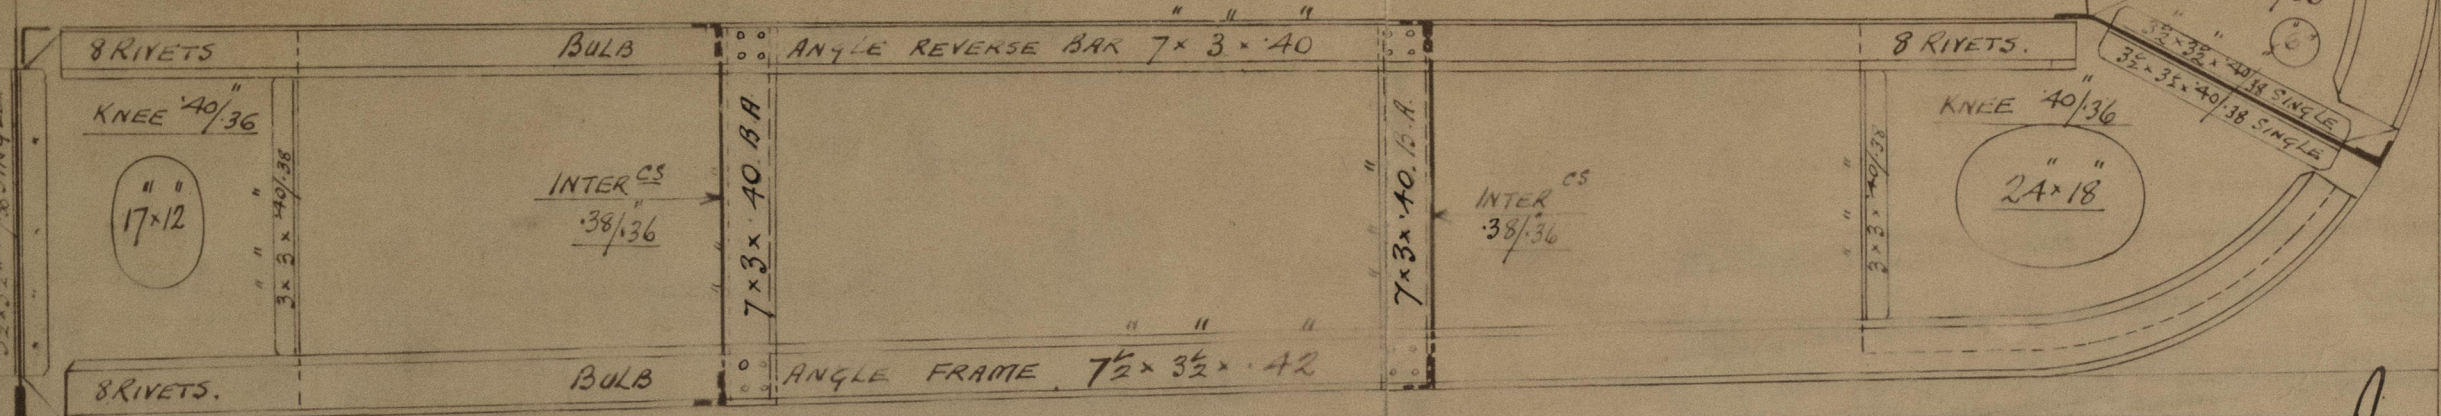 8 RIVETS
BULB ANGLE REVERSE BAR 7" × 3" × ·40"
8 RIVETS.
KNEE ·40/.36"
17" × 12"
3" × 3" × ·40/.38"
INTER CS
·38/.36"
7" × 3" × ·40" B.A.
7" × 3" × ·40" B.A.
INTER CS
·38/.36"
3" × 3" × ·40/.38"
KNEE ·40/.36"
24" × 18"
3½" × 3½" × ·40/.38 SINGLE
3½" × 3½" × ·40/.38 SINGLE
6"
8 RIVETS.
BULB ANGLE FRAME 7½" × 3½" × ·42"